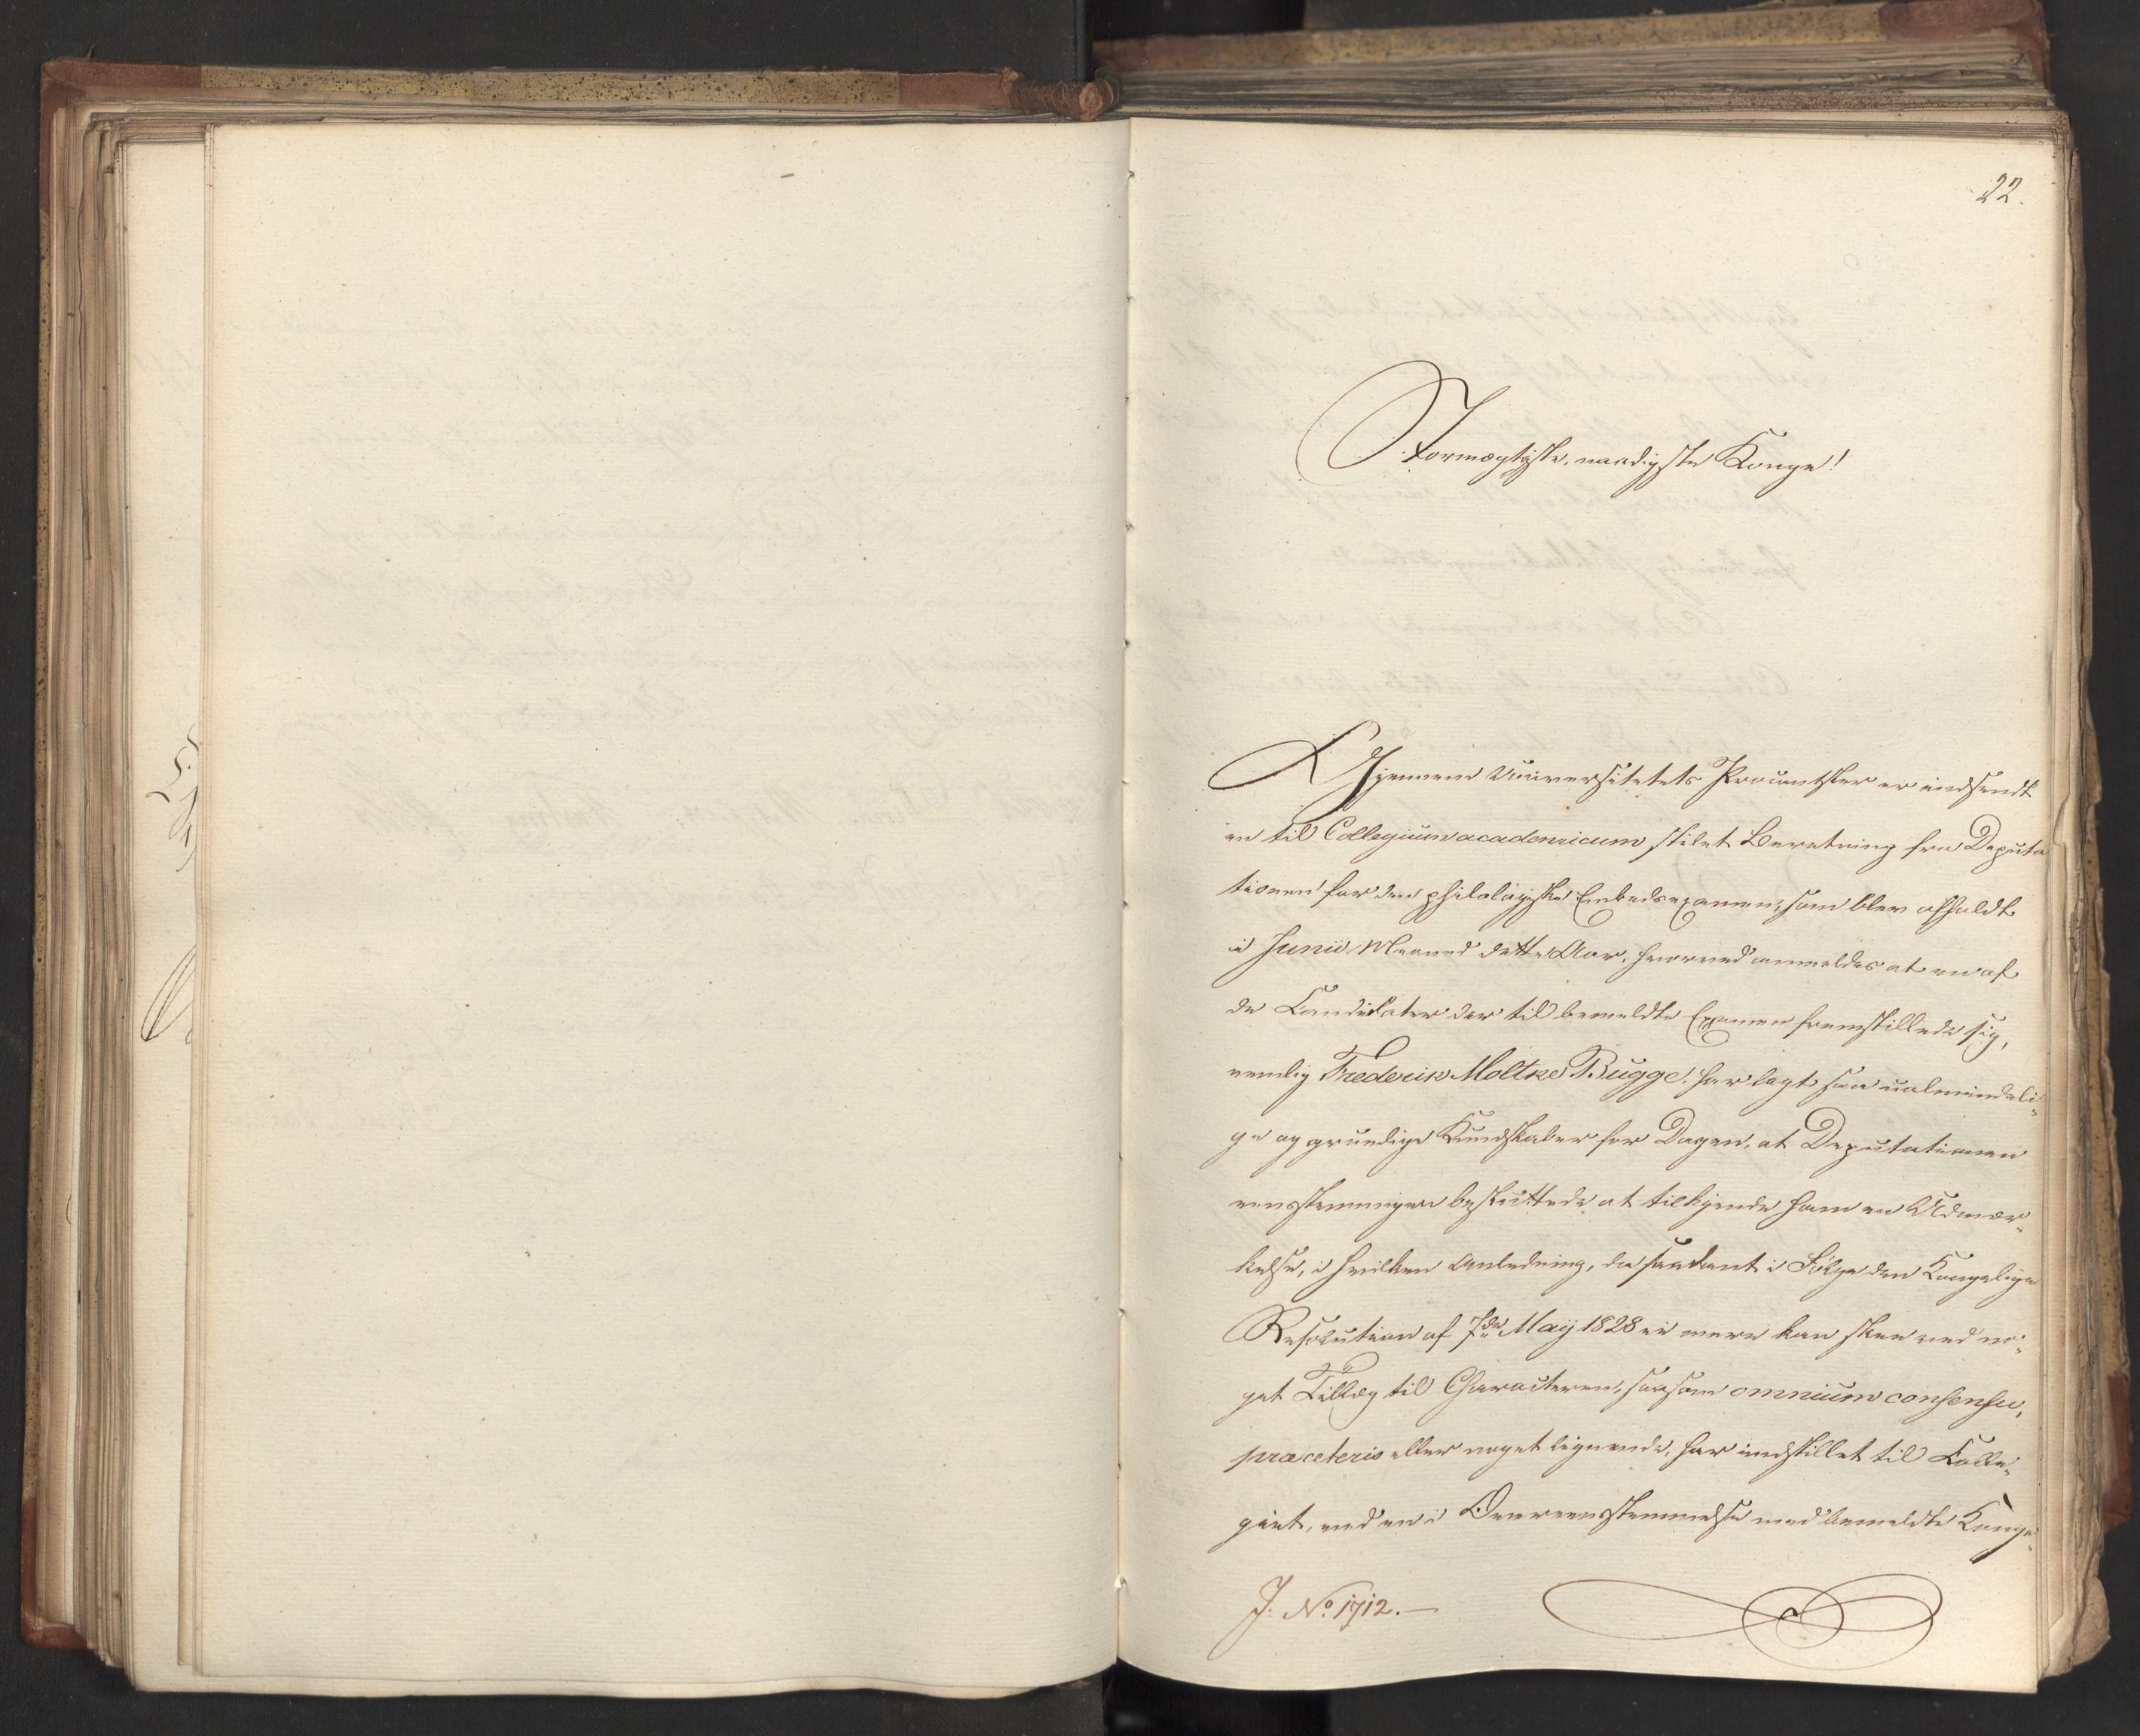 22.
Stormægtigste, naadigste Konge!
Igjennem Universitetets Procantsler er indsendt
en til Collegium academicum stilet Beretning fra Deputa
tionen for den philologiske Embedsexamen, som blev afholdt
i Junii Maaned dette Aar, hvorved anmeldes at en af
de Candidater der til bemeldte Examen fremstillede sig,
nemlig Frederik Moltke Bugge, har lagt saa ualmindeli-
ge og grundige Kundskaber for Dagen, at Deputationen
eensstemmigen besluttede at tilkjende ham en Udmær-
kelse, i hvilken Anledning, da saadant i Følge den Kongelige
Resolution af 7de May 1828 ei mere kan skee ved no-
get Tillæg til Characteren, saasom omnium consensu,
præ ceteris eller noget lignende, har indstillet til Colle-
giet, ved en i Overeensstemmelse med bemeldte Konge-
J: No. 1712.—